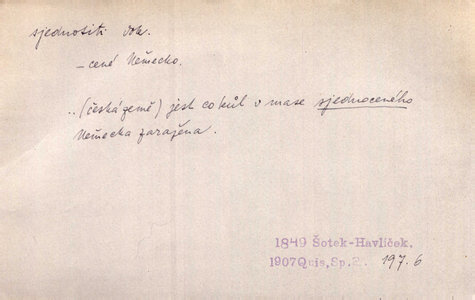 sjednotiti dok.
–cené Německo.
..(česká země) jest co kůl v mase sjednoceného
Německa zaražena.
1849 Šotek-Havlíček.
1907 Quis, Sp.2. 197.6